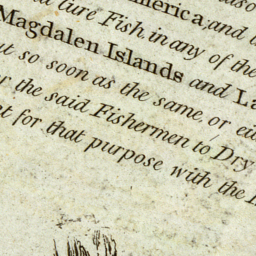 America, and
and cure Fish in any of the
Magdalen Islands and La
but so soon as the same, or ei
for the said Fishermen to Dry
nt for that purpose with the